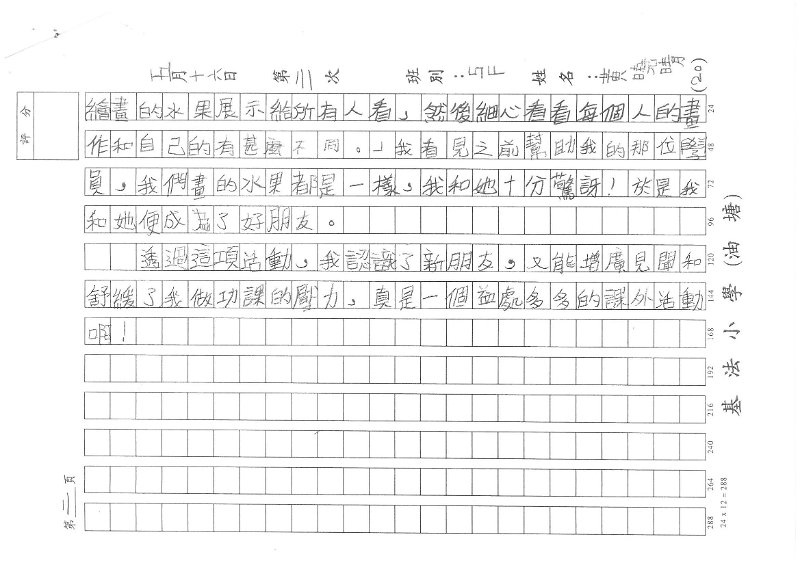 五月十六日 第三次 班別：5F 姓名：黃 晴 (20)
評分
繪畫的水果展示給所有人看，然後細心看看每個人的畫 24
作和自己的有甚麼不同。」我看見之前幫助我的那位學 48
員，我們畫的水果都是一樣，我和她十分驚訝！於是我 72
和她便成為了好朋友。 96
透過這項活動，我認識了新朋友，又能增廣見聞和 120
舒緩了我做功課的壓力，真是一個益處多多的課外活動 144
啊！ 168
192
216
240
264
288
第三頁
24 x 12 = 288
基法小學(油塘)